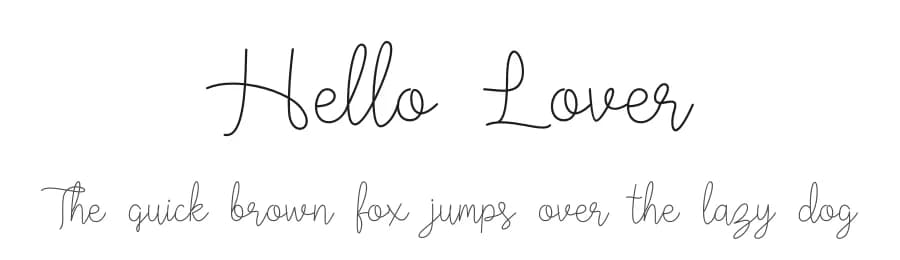 Hello Lover
The quick brown fox jumps over the lazy dog